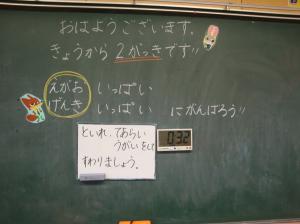 おはようございます。
きょうから2がっきです!!
えがお いっぱい
げんき いっぱい にがんばろう!!
といれ、てあらい
うがいをして
すわりましょう。